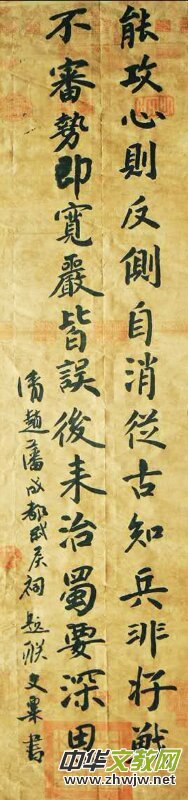 能攻心則反側自消從古知兵非好戰
不審勢即寬嚴皆誤後來治蜀要深思
清趙藩成都武侯祠題聯文粟書
中华文教网
www.zhwjw.net